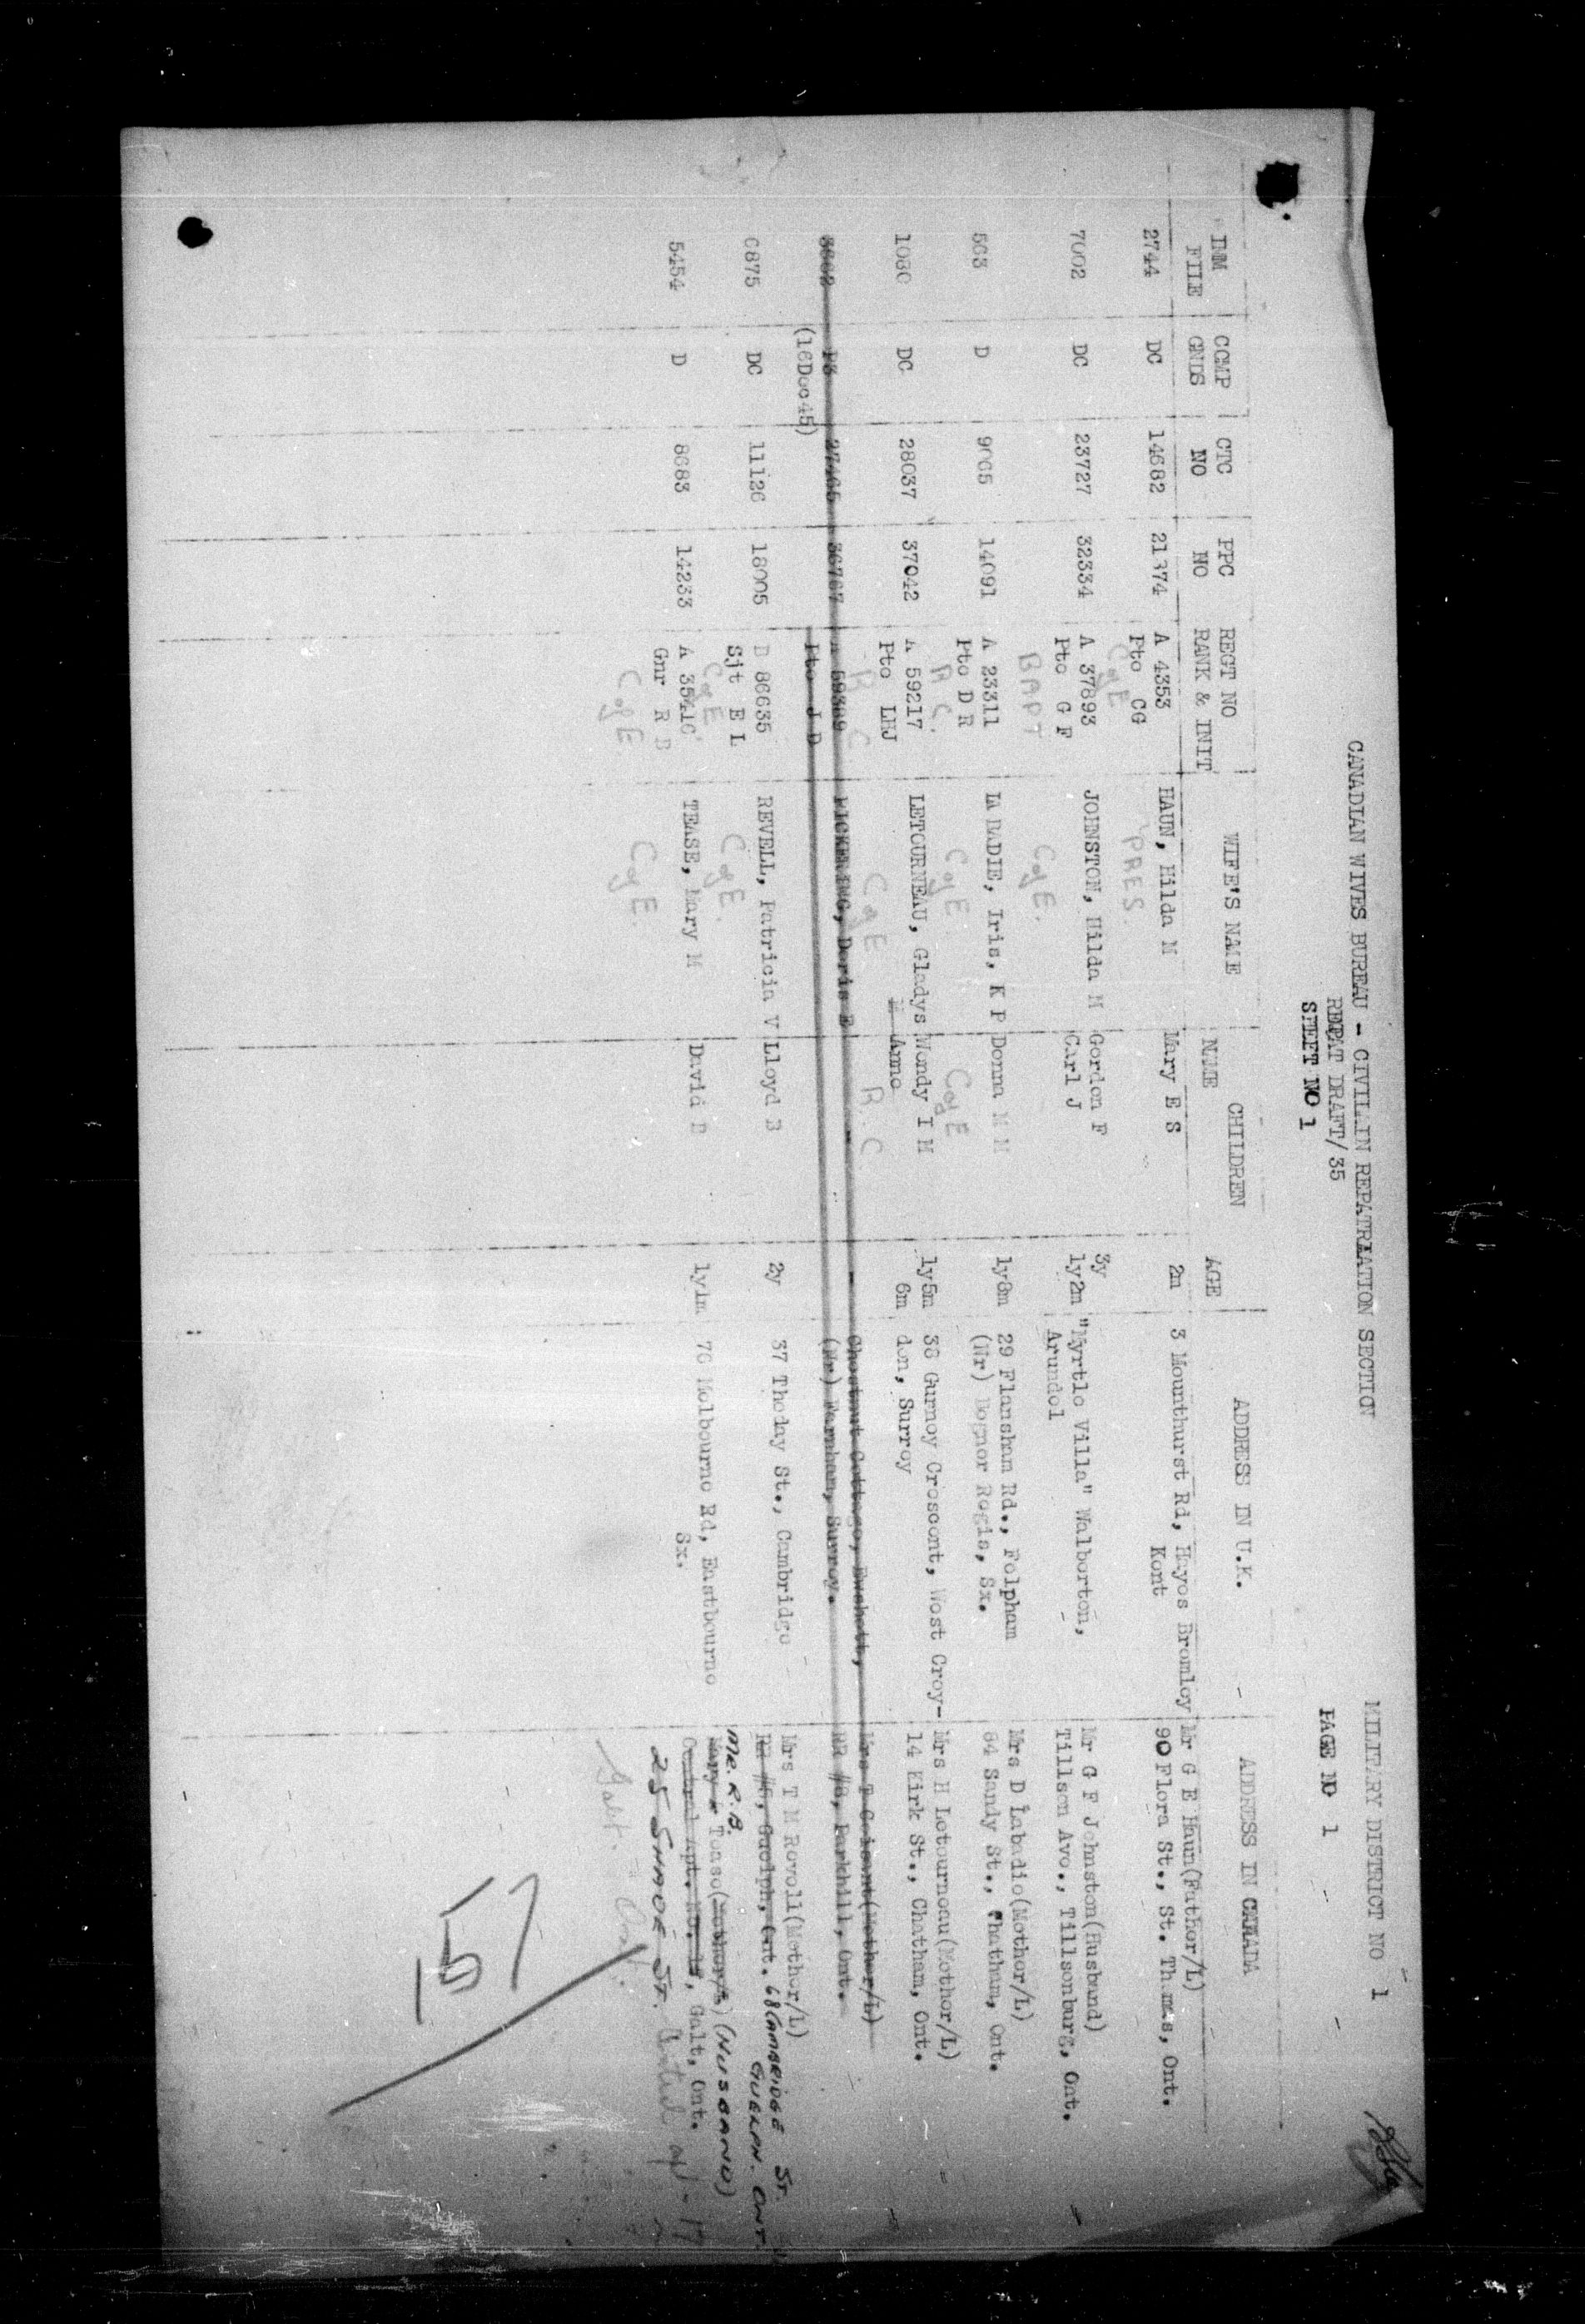 CANADIAN WIVES BUREAU - CIVILIAN REPATRIATION SECTION
MILITARY DISTRICT NO 1
REPEAT DRAFT/35
PAGE NO 1
SHEET NO 1
IMM FILE COMP GNDS CTC NO PPC NO REGT NO RANK & INIT WIFE'S NAME CHILDREN NAME AGE ADDRESS IN U.K. ADDRESS IN CANADA
2744 DC 14682 21374 A 4353 HAUN, Hilda M Mary E S 2m 3 Mounthurst Rd, Hayes Bromley Mr G E Haun(Father/L)
Pte CG Kent 90 Flora St., St. Thomas, Ont.
C of E PRES
7002 DC 23727 32334 A 37893 JOHNSTON, Hilda M Gordon F 3y "Myrtle Villa" Walberton, Mr G F Johnston(Husband)
Pte G F Carl J 1y2m Arundel Tillson Ave., Tillsonburg, Ont.
BAPT C of E.
563 D 9065 14091 A 23311 LA BADIE, Iris, K P Donna M M 1y8m 29 Flansham Rd., Felpham Mrs D Labadie(Mother/L)
Pte D R (Nr) Bognor Regis, Sx. 84 Sandy St., Chatham, Ont.
R C. C of E. C of E
1080 DC 28037 37042 A 59217 LETOURNEAU, Gladys Wendy I M 1y5m 38 Gurney Crescent, West Croy- Mrs H Letourneau(Mother/L)
Pte LHJ M Anne 6m don, Surrey 14 Kirk St., Chatham, Ont.
R C C of E R.C
P3 27465 36767 A 59389 PICKERING, Doris E - Chestnut Cottage, Ewshott,
(16Dec45) Pte J D (Nr) Farnham, Surrey. RR #8, Parkhill, Ont.
6875 DC 11126 18005 B 86635 REVELL, Patricia V Lloyd B 2y 37 Thoday St., Cambridge Mrs T M Revell(Mother/L)
Sjt E L RR #6, Guelph, Ont. 68 CAMBRIDGE ST. GUELPH. ONT.
C of E C of E.
5454 D 8683 14233 A 35416 TEASE, Mary M David B 1y1m 76 Melbourne Rd, Eastbourne MR. R.B. Tease(Mother/L) (HUSBAND)
Gnr R B Sx. Central Apt. , Galt, Ont.
C of E C of E. 25 SHADE ST.
Galt. Ont.
15/7